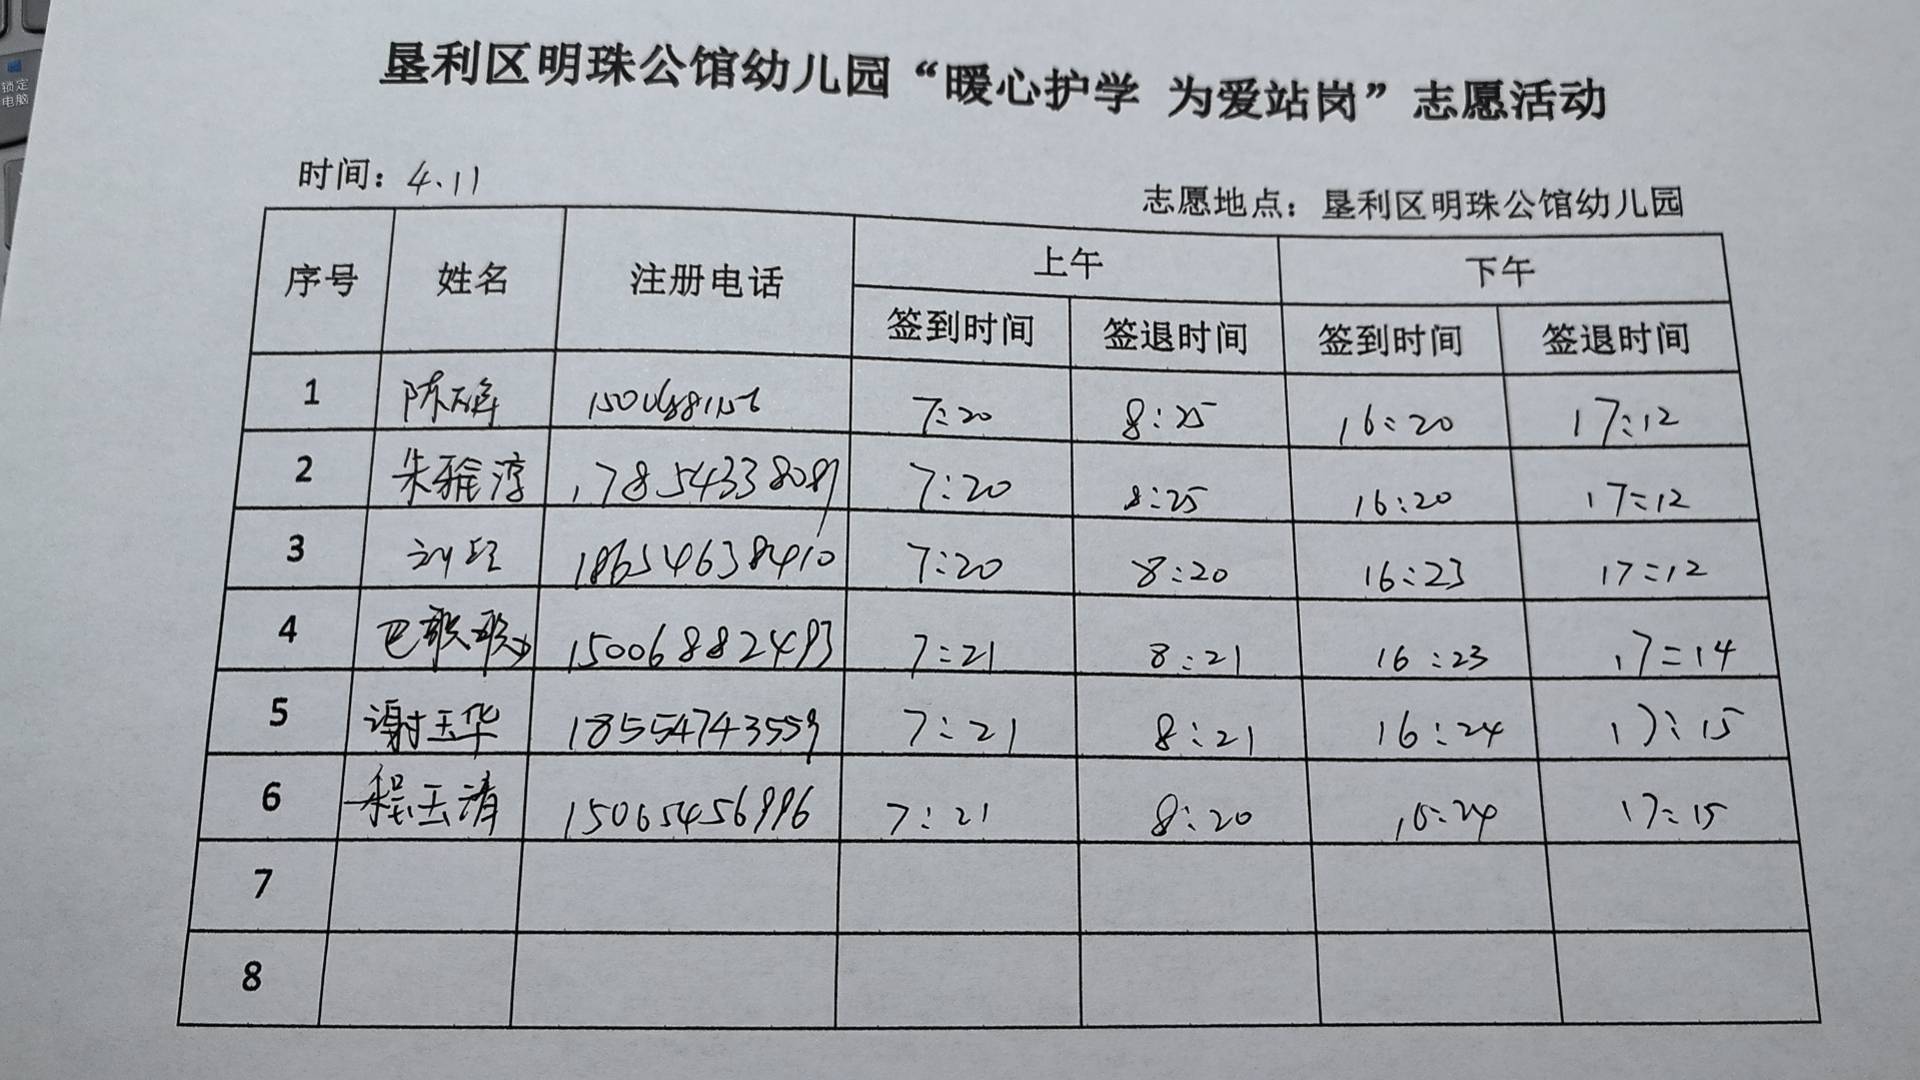 锁定
电脑
垦利区明珠公馆幼儿园“暖心护学 为爱站岗”志愿活动
时间：4.11
志愿地点：垦利区明珠公馆幼儿园
序号 姓名 注册电话 上午 下午
签到时间 签退时间 签到时间 签退时间
1 7:20 8:25 16:20 17:12
2 朱雅淳 17854338089 7:20 8:25 16:20 17:12
3 18654638410 7:20 8:20 16:23 17:12
4 巴歌歌 15006882493 7:21 8:21 16:23 17:14
5 谢玉华 18554743559 7:21 8:21 16:24 17:15
6 程玉清 15065456996 7:21 8:20 16:24 17:15
7
8